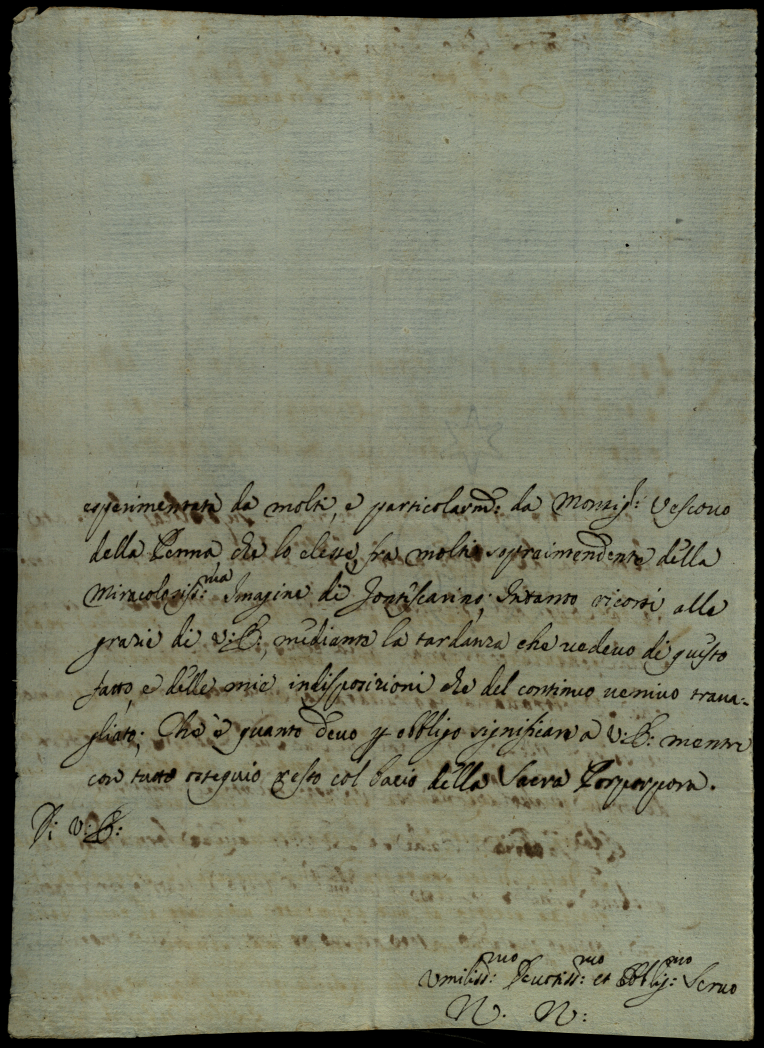 esperimentata da molti, e particolarm:te da Monsig:r Vescouo
della Penna che lo elesse fra molti sopraintendente della
Miracolosiss:ma Imagine di Intanto ricorsi alle
grazie di V:E:, mediante la tardanza che uedeuo di questo
fatto, e delle mie indisposizioni che del continuo ueniuo traua-
gliato; Che è quanto deuo p obbligo significare a V:E: mentre
con tutto ossequio resto col bacio della Sacra Porporpora.
Di V:E:
Vmiliss:mo Deuotiss:mo et Obblig:mo Seruo
N. N: